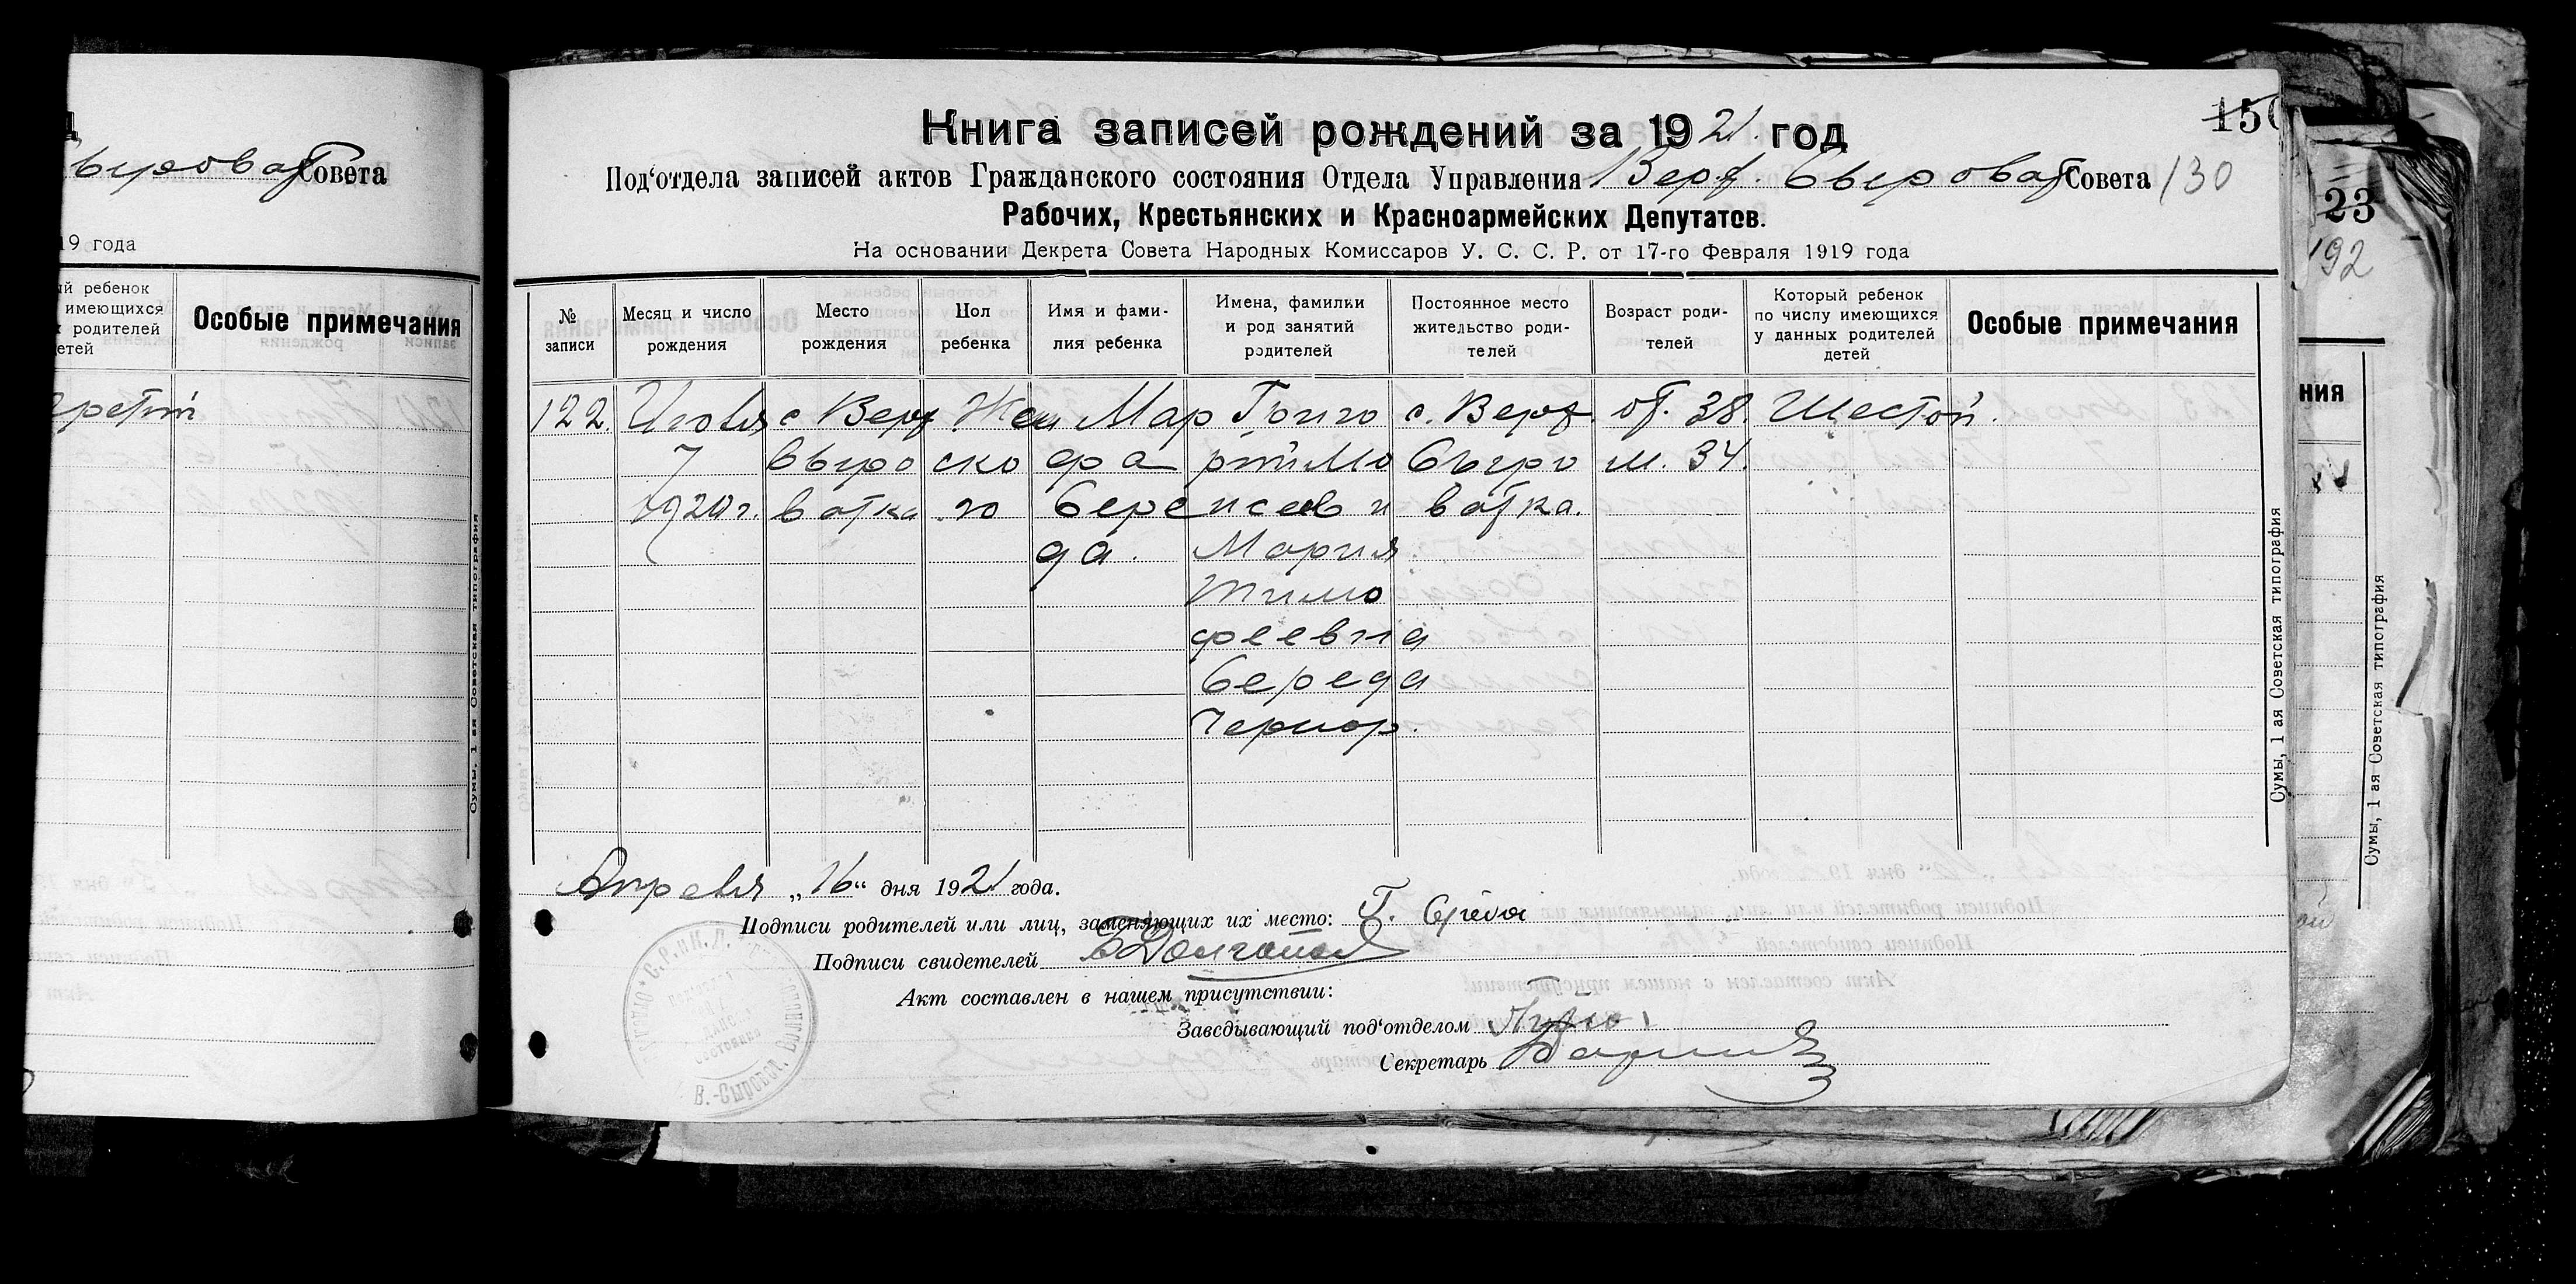 Совета
19 года
ый ребенок
имеющихся
х родителей
етей
Особые примечания
Сумы, 1 ая Советская типография
Книга записей рождений за 1921. год
150
Под‘отдела записей актов Гражданского состояния Отдела Управления Верх. Сыроват Совета 130
Рабочих, Крестьянских и Красноармейских Депутатов.
На основании Декрета Совета Народных Комиссаров У. С. С. Р. от 17-го Февраля 1919 года
№ записи
Месяц и число рождения
Место рождения
Пол ребенка
Имя и фами-
лия ребенка
Имена, фамилии
и род занятий
родителей
Постоянное место
жительство роди-
телей
Возраст роди-
телей
Который ребенок
по числу имеющихся
у данных родителей
детей
Особые примечания
122. Июля с Верх Жен Мар Григо с. Верх. от. 38. Шестой.
7 Сыро ско фа Сыро м. 34.
1920 г. ватка го Сере и ватка.
да. Мария
Тимо
феевна
Середа
Сумы, 1 ая Советская типография
Апреля „16“ дня 1921 года.
Подписи родителей или лиц, заменяющих их место: Г.
Подписи свидетелей
Акт составлен в нашем присутствии:
Заведывающий под‘отделом
Секретарь
В.-Сыроват.
23
192
ния
Сумы, 1 ая Советская типография